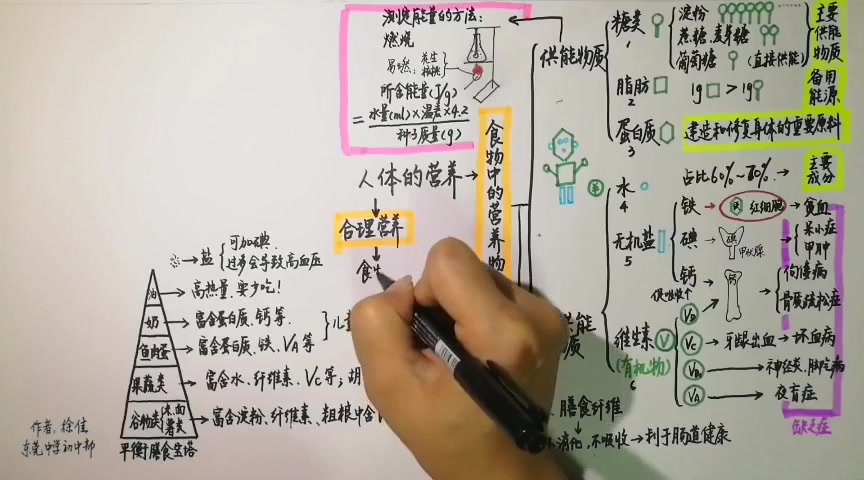 测定能量的方法:
燃烧
易燃:花生
核桃
所含能量(J/g)
= 水量(ml)×温差×4.2
种子质量(g)
人体的营养→
合理营养
食
食物中的营养物
供能物质
糖类
1
淀粉
蔗糖、麦芽糖
葡萄糖 (直接供能)
主要
供能
物质
脂肪
2
1g > 1g
备用
能源
蛋白质
3
建造和修复身体的重要原料
水
4
占比60%~70% →
主要
成分
无机盐
5
铁 → 铁 红细胞 → 贫血
碘 → 碘
甲状腺
呆小症
甲肿
钙
钙
佝偻病
骨质疏松症
促吸收
供能
质
维生素 V
(有机物)
6
VD
VC → 牙龈出血 → 坏血病
VB → 神经炎、脚气病
VA → 夜盲症
缺乏症
膳食纤维
不消化,不吸收→利于肠道健康
盐
可加碘
过多会导致高血压
油 → 高热量,要少吃!
奶 → 富含蛋白质、钙等.
鱼肉蛋 → 富含蛋白质、铁、VA等
儿
果蔬类 → 富含水、纤维素、VC等;胡
谷物类 米、面
薯类
→ 富含淀粉、纤维素、粗粮中含
平衡膳食宝塔
作者:徐佳
东莞中学初中部